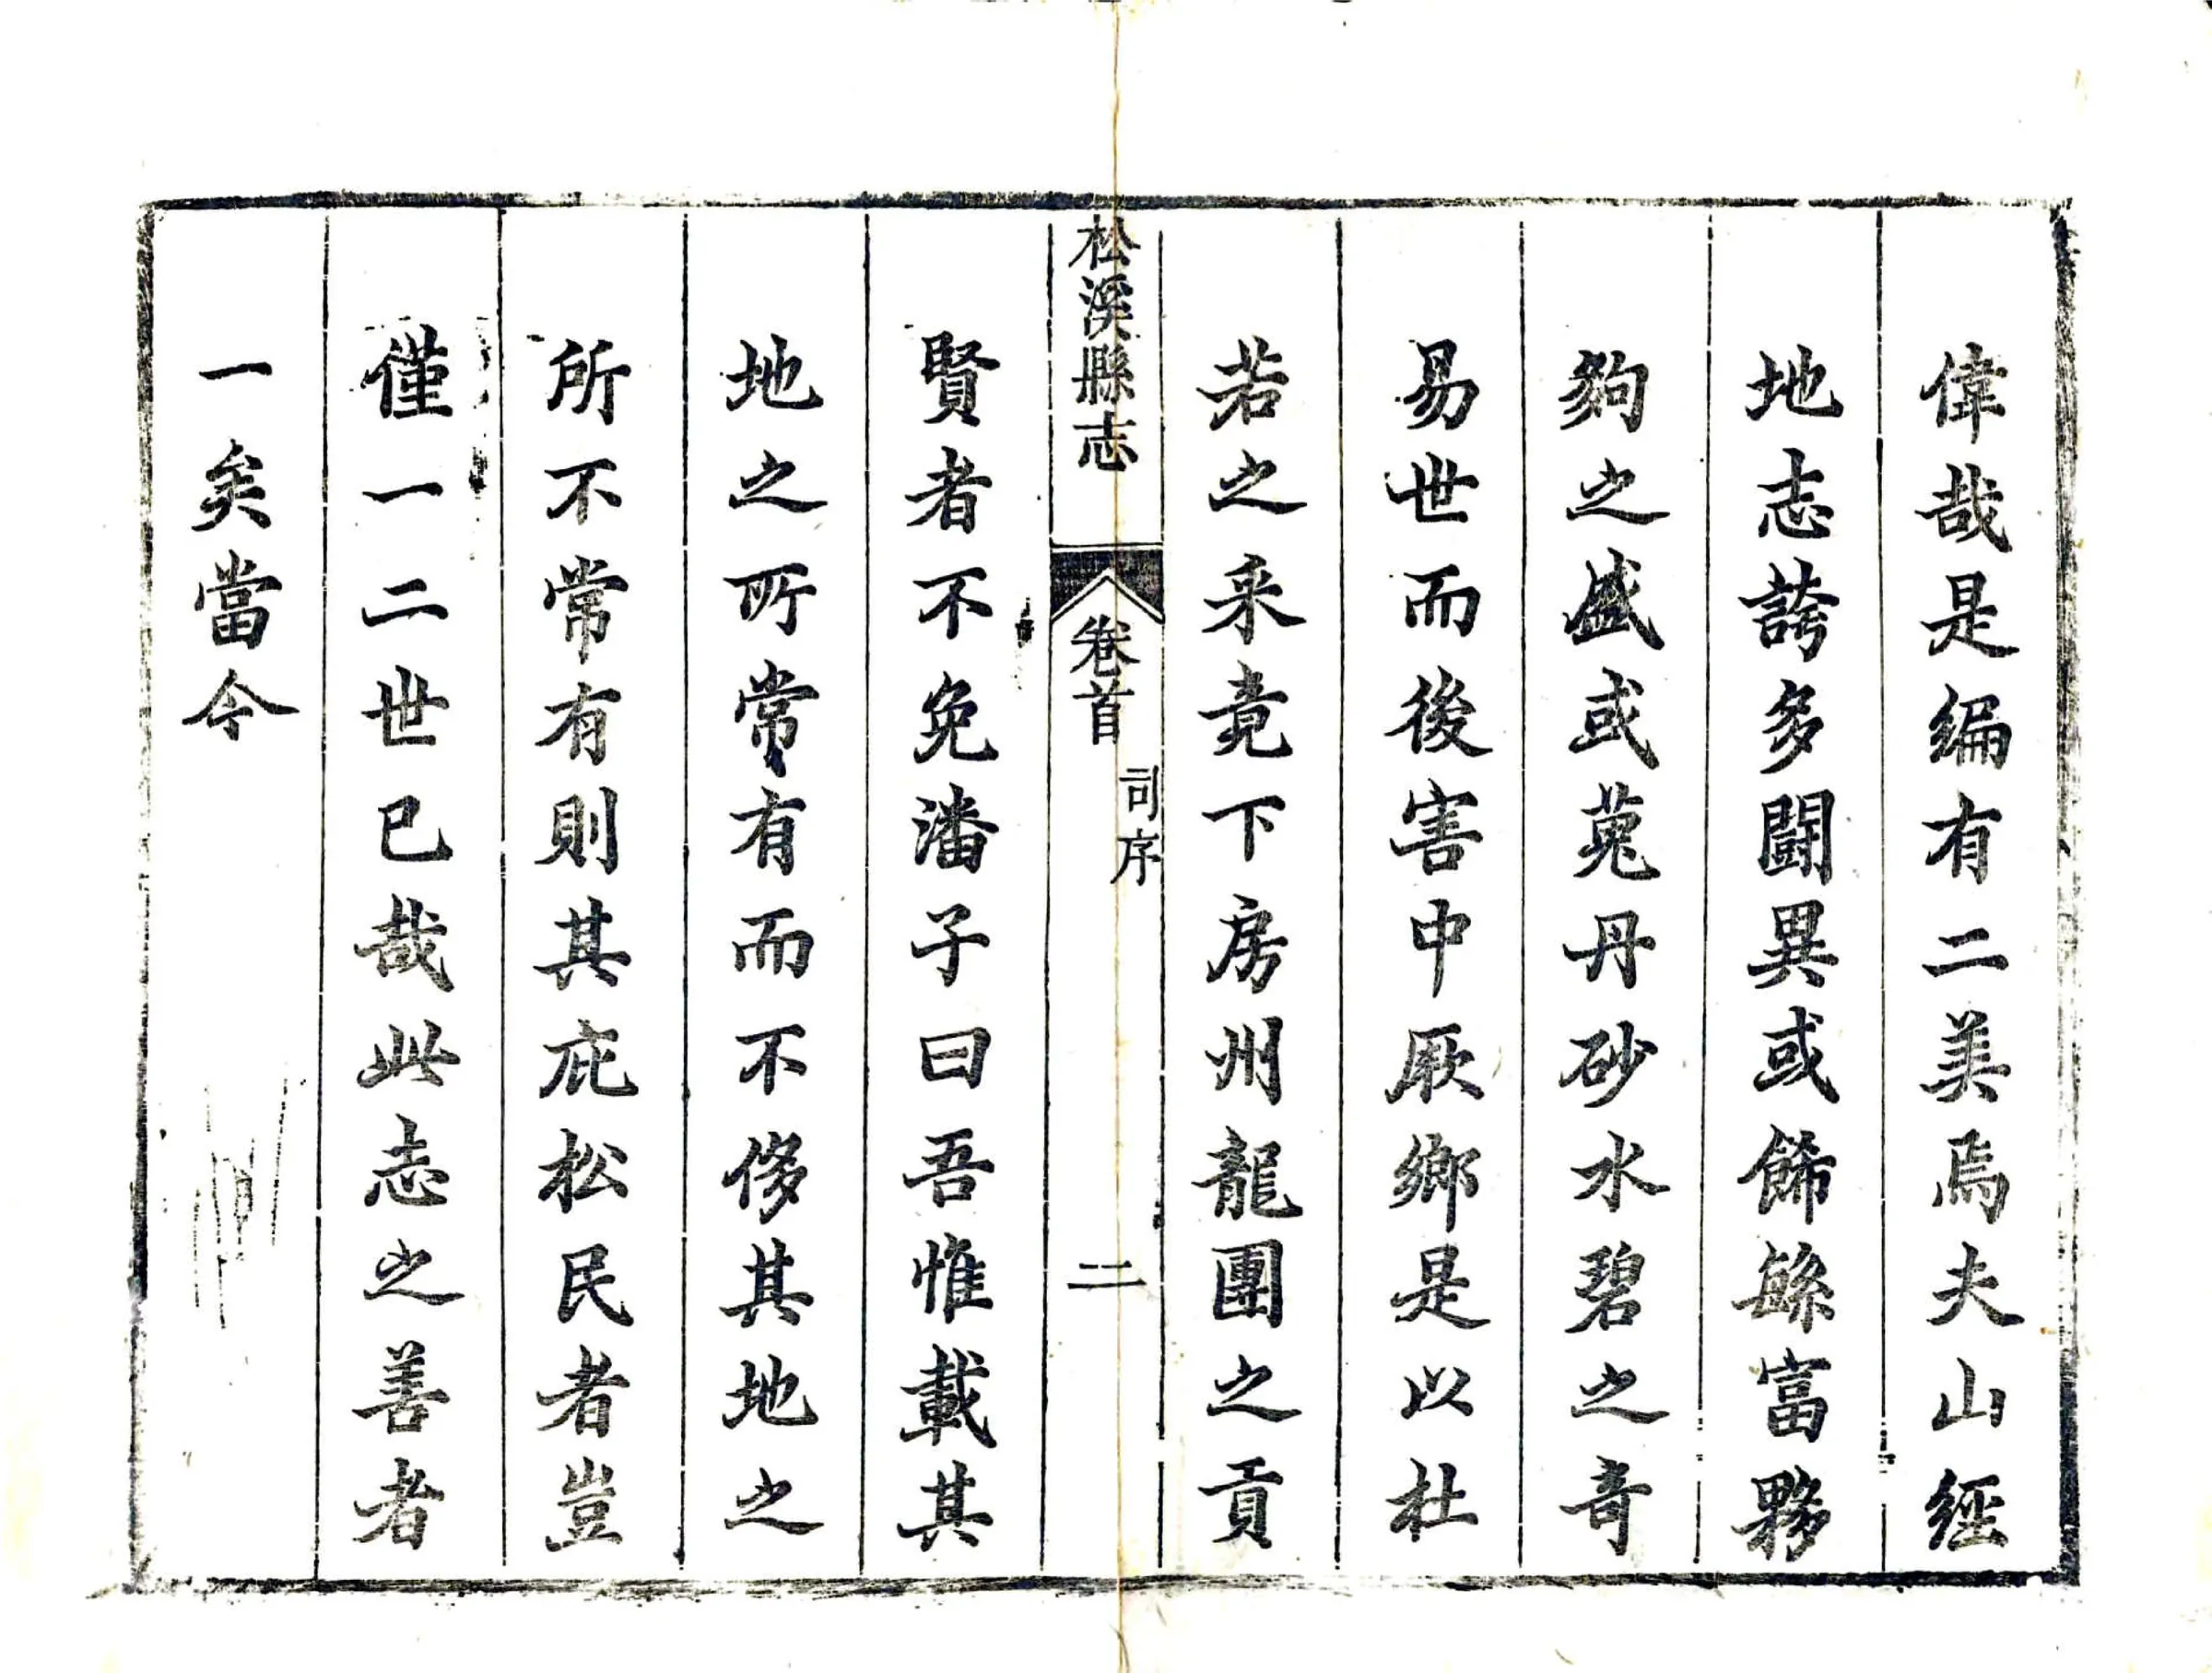 偉哉是編有二美焉夫山經
地志誇多鬪異或飾繇富夥
夠之盛或菟丹砂水碧之奇
易世而後害中厥鄉是以杜
若之采竟下房州龍團之貢
松溪縣志
卷首
司序
二
賢者不免潘子曰吾惟載其
地之所常有而不侈其地之
所不常有則其庇松民者豈
僅一二世已哉此志之善者
一矣當今